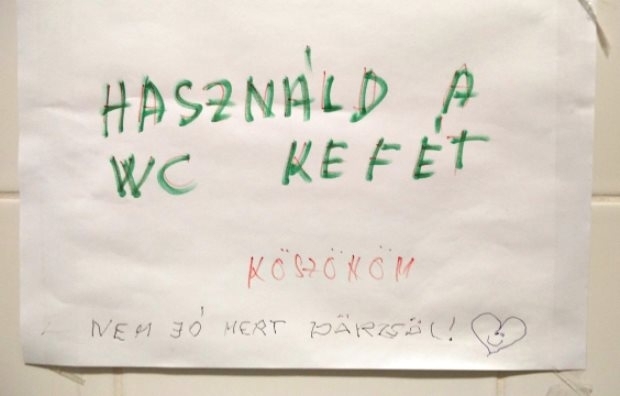 HASZNÁLD A
WC KEFÉT
KÖSZÖNÖM
NEM JÓ MERT